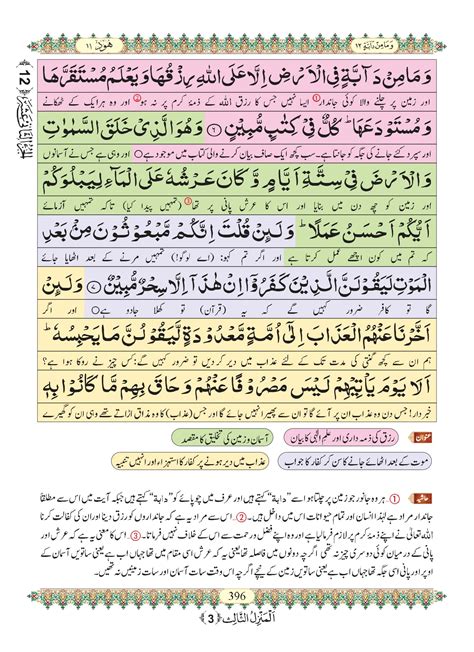 وَمَا مِنْ دَآبَّةٍ ١٢
هُوْد ١١
12
وَمَا مِنْ دَآبَّةٍ فِی الْاَرْضِ اِلَّا عَلَی اللّٰهِ رِزْقُهَا وَیَعْلَمُ مُسْتَقَرَّهَا
اور زمین پر چلنے والا کوئی جاندار ① ایسا نہیں جس کا رزق اللہ کے ذمۂ کرم پر نہ ہو ② اور وہ ہر ایک کے ٹھکانے
وَمُسْتَوْدَعَهَا ؕ كُلٌّ فِیْ كِتٰبٍ مُّبِیْنٍ ۶ وَهُوَ الَّذِیْ خَلَقَ السَّمٰوٰتِ
اور سپرد کئے جانے کی جگہ کو جانتا ہے۔ سب کچھ ایک صاف بیان کرنے والی کتاب میں موجود ہے ○ اور وہی ہے جس نے آسمانوں
وَالْاَرْضَ فِیْ سِتَّةِ اَیَّامٍ وَّكَانَ عَرْشُهٗ عَلَی الْمَآءِ لِیَبْلُوَكُمْ
اور زمین کو چھ دن میں بنایا اور اس کا عرش پانی پر تھا ③ (تمہیں پیدا کیا) تاکہ تمہیں آزمائے
اَیُّكُمْ اَحْسَنُ عَمَلًا ؕ وَلَىِٕنْ قُلْتَ اِنَّكُمْ مَّبْعُوْثُوْنَ مِنْۢ بَعْدِ
کہ تم میں کون اچھے عمل کرتا ہے اور اگر تم کہو: (اے لوگو!) تمہیں مرنے کے بعد اٹھایا جائے
الْمَوْتِ لَیَقُوْلَنَّ الَّذِیْنَ كَفَرُوْۤا اِنْ هٰذَاۤ اِلَّا سِحْرٌ مُّبِیْنٌ ۷ وَلَىِٕنْ
گا تو کافر ضرور کہیں گے کہ یہ (قرآن) تو کھلا جادو ہے ○ اور اگر
اَخَّرْنَا عَنْهُمُ الْعَذَابَ اِلٰۤی اُمَّةٍ مَّعْدُوْدَةٍ لَّیَقُوْلُنَّ مَا یَحْبِسُهٗ ؕ
ہم ان سے کچھ گنتی کی مدت تک کے لئے عذاب میں دیر کردیں تو ضرور کہیں گے: کس چیز نے روکا ہوا ہے؟
اَلَا یَوْمَ یَاْتِیْهِمْ لَیْسَ مَصْرُوْفًا عَنْهُمْ وَحَاقَ بِهِمْ مَّا كَانُوْا بِهٖ
خبردار! جس دن وہ عذاب ان پر آئے گا تو ان سے پھیرا نہیں جائے گا اور جس (عذاب) کا وہ مذاق اڑاتے تھے وہی ان کو گھیرے
عنوان رزق کی ذمہ داری اور علمِ الٰہی کا بیان آسمان و زمین کی تخلیق کا مقصد
موت کے بعد اٹھائے جانے کا سن کر کفار کا جواب عذاب میں دیر ہونے پر کفار کا استہزاء اور انہیں تنبیہ
حاشیہ ① ہر وہ جانور جو زمین پر چلتا ہو اسے ”دابۃ“ کہتے ہیں اور عرف میں چوپائے کو ”دابۃ“ کہتے ہیں جبکہ آیت میں اس سے مطلقاً
جاندار مراد ہے لہٰذا انسان اور تمام حیوانات اس میں داخل ہیں۔ ② اس سے مراد یہ ہے کہ جانداروں کو رزق دینا اور ان کی کفالت کرنا
اللہ تعالیٰ نے اپنے ذمۂ کرم پر لازم فرما لیا ہے اور اللہ تعالیٰ اس کے خلاف نہیں فرماتا۔ ③ اس کا معنی یہ ہے کہ عرش اور
پانی کے درمیان کوئی دوسری چیز نہ تھی اگرچہ دونوں میں فاصلہ تھا یعنی یہ کہ عرش اسی مقام میں تھا جہاں اب ہے یعنی ساتویں آسمان کے
اوپر اور پانی اسی جگہ تھا جہاں اب ہے یعنی ساتویں زمین کے نیچے اگرچہ اس وقت سات آسمان اور سات زمینیں نہ تھیں۔
396
اَلْمَنْزِلُ الثَّالِث ﴿ 3 ﴾